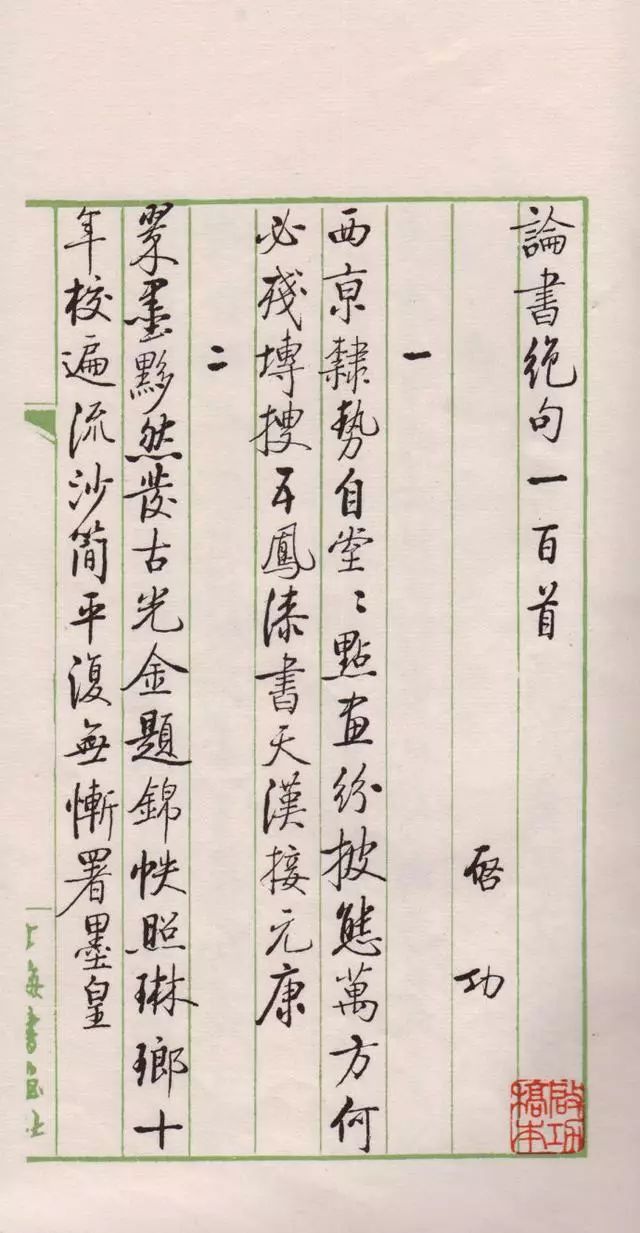 論書絶句一百首
啓功
一
西京隸勢自堂〻點畫紛披態萬方何
必殘塼搜五鳳漆書天漢接元康
二
翠墨黟然發古光金題錦帙照琳瑯十
年校遍流沙簡平復無慚署墨皇
上海書畫社
啟功稿本